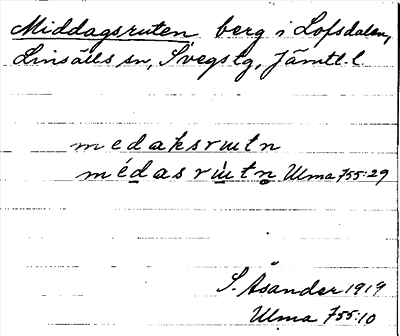 Middagsruten, berg i Lofsdalen,
Linsälls sn, Svegs tg, Jämtl. l.
medaksrɯtn
médasrɯ̀tn Ulma 755:29
S. Åsander 1919
Ulma 755:10